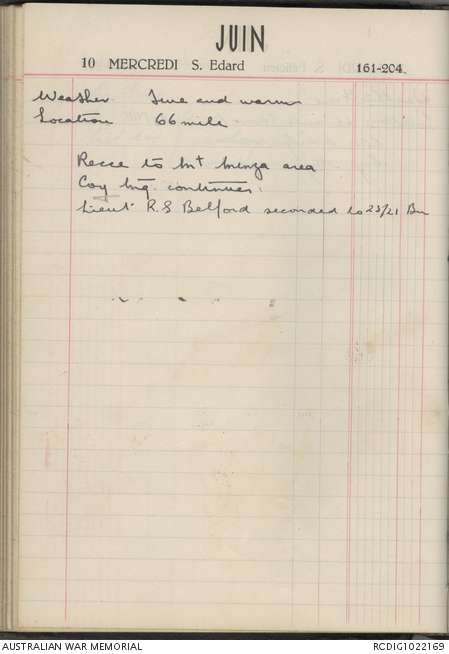 JUIN
10 MERCREDI S. Edard 161-204
Weather Fine and warm
Location 66 mile
Recce to Mt Menza area
Coy trng. continues.
Lieut R.S Belford seconded to 23/21 Bn
AUSTRALIAN WAR MEMORIAL RCDIG1022169